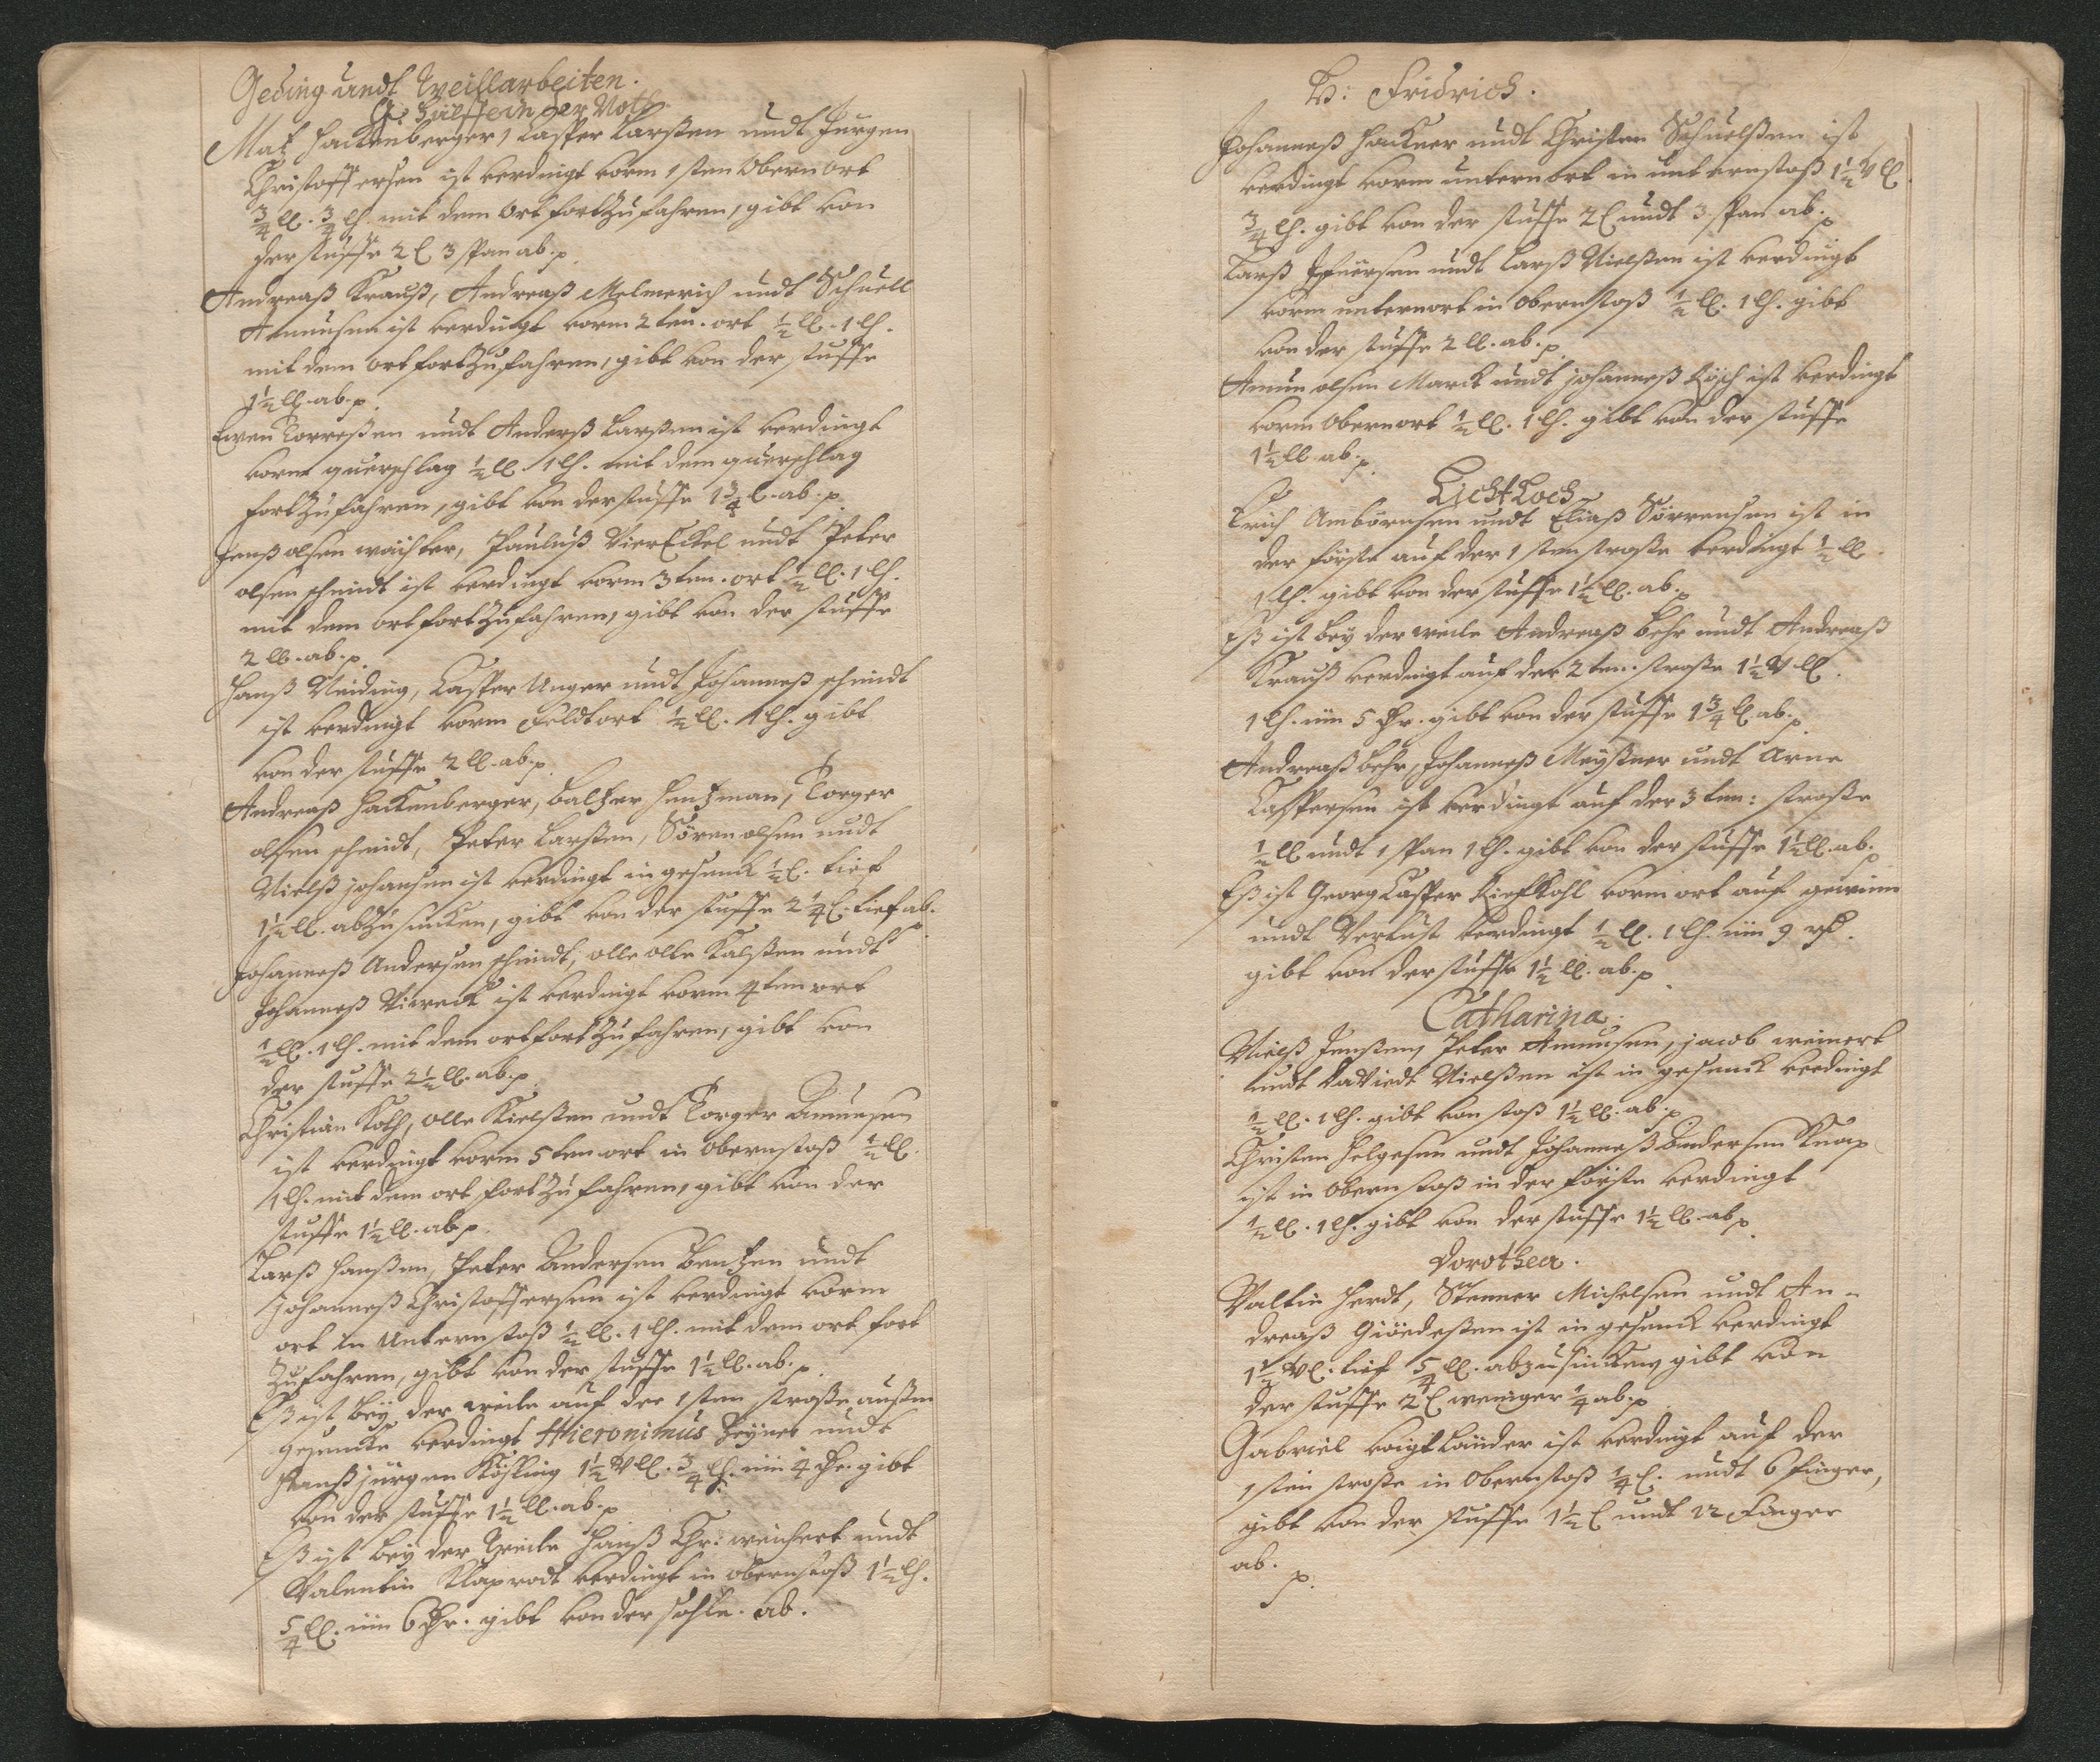 Geding undt Weillarbeiten.
G: Hülff in der Noth.
Matz Hackenberger, Casper Larßen undt Jurgen
Christoffersen ist verdingt vorm 1sten Obern ort
3/4 ll. 3/4 lh. mit dem Ort fortzufahren, gibt von
der stuffe 2 l 3 span ab. p.
Andreaß Krauß, Andreaß Melmerich undt Schuell
Amunsen ist verdingt vorm 2ten. ort 1/2 ll. 1 lh.
mit dem ort fortzufahren, gibt von der stuffe
1 1/2 ll. ab. p.
Ewen Torreßen undt Anderß Larßen ist verdingt
vorm querschlag 1/2 ll 1 lh. mit dem querschlag
fortzufahren, gibt von der stuffe 1 3/4 l. ab. p.
Jenß olsen wächter, Pauluß VierEckel undt Peter
olsen schmidt ist verdingt vorm 3ten. ort 1/2 ll. 1 lh.
mit dem ort fortzufahren, gibt von der stuffe
2 ll. ab. p.
Hanß Neiding, Casper Unger undt Johanneß schmidt
ist verdingt vorm Feldtort 1/2 ll. 1 lh. gibt
von der stuffe 2 ll. ab. p.
Andreaß Hackenberger, Baltzer Hentzman, Torger
olsen schmidt, Peter Larßen, Sören olsen undt
Nielß johansen ist verdingt in gesenck 1/2 l. tief
1 1/2 ll. abzusincken, gibt von der stuffe 2 1/4 l. tief ab. p.
Johanneß Andersen schmidt, olle olle Kalßen undt
Johanneß Viereck ist verdingt vorm 4ten ort
1/2 ll. 1 lh. mit dem ort fortzufahren, gibt von
der stuffe 2 1/2 ll. ab. p.
Christian Koth, olle Kielßen undt Torger Amunsen
ist verdingt vorm 5ten ort in obernstoß 1/2 ll.
1 lh. mit dem ort fortzufahren, gibt von der
stuffe 1 1/2 ll. ab p.
Larß Hanßen, Peter Andersen Bentzen undt
Johanneß Christoffersen ist verdingt vorm
ort in Unternstoß 1/2 ll. 1 lh. mit dem ort fort
zufahren, gibt von der stuffe 1 1/2 ll. ab. p.
Eß ist bey der weile auf der 1sten stroße außm
gesencke verdingt Hieronimus undt
Hanß jürgen Kößling 1 1/2 V ll. 3/4 lh. üm 4 gibt
von der stuffe 1 1/2 ll. ab. p.
Eß ist bey der Weile Hanß Chr: weichert undt
Valentin Klaprodt verdingt in obernstoß 1 1/2 lh.
5/4 ll. üm 6 gibt von der sohle. ab.
H: Fridrich.
Johanneß Hackner undt Christen Schuelßen ist
verdingt vorm untern ort in unternstoß 1 1/2 V ll.
3/4 lh. gibt von der stuffe 2 l undt 3 span ab. p
Larß undt Larß Nielßen ist verdingt
vorm unternort in obernstoß 1/2 ll. 1 lh. gibt
von der stuffe 2 ll. ab. p.
Amun olsen Marck undt johanneß Rösch ist verdingt
vorm Obernort 1/2 ll. 1 lh. gibt von der stuffe
1 1/2 ll ab. p.
LichtLoch
Erich Ambörnsen undt Eliaß Sörrensen ist in
der förste auf der 1sten stroße verdingt 1/2 ll.
1 lh. gibt von der stuffe 1 1/2 ll. ab. p
Eß ist bey der weile Andreaß Behr undt Andreaß
Krauß verdingt auf der 2ten. stroße 1 1/2 V ll.
1 lh. üm 5 gibt von der stuffe 1 3/4 l. ab. p.
Andreaß behr, Johanneß Meyßner undt Arne
Caspersen ist verdingt auf der 3ten: stroße
1/2 ll undt 1 span 1 lh. gibt von der stuffe 1 1/2 ll. ab. p
Eß ist Georg Casper Riefkohl vorm ort auf gewinn
undt Verlust verdingt 1/2 ll. 1 lh. üm 9
gibt von der stuffe 1 1/2 ll. ab. p.
Catharina.
Nielß Jenßen, Peter Amunsen, jacob weinert
undt Daviedt Nielßen ist in gesenck verdingt
1/2 ll. 1 lh. gibt von stoß 1 1/2 ll. ab. p
Christen Helgesen undt Johanneß Andersen Knap
ist in obernstoß in der förste verdingt
1/2 ll. 1 lh. gibt von der stuffe 1 1/2 ll. ab p.
Dorothea.
Valtin Herdt, Stenner Michelsen undt An-
dreaß Giöedeßen ist in gesenck verdingt
1 1/2 V l. tief 5/4 ll. abzusincken, gibt von
der stuffe 2 l weniger 1/4 ab. p
Gabriel voigtländer ist verdingt auf der
1sten stroße in obernstoß 1/4 l. undt 6 finger,
gibt von der stuffe 1 1/2 l undt 12 Finger
ab. p.